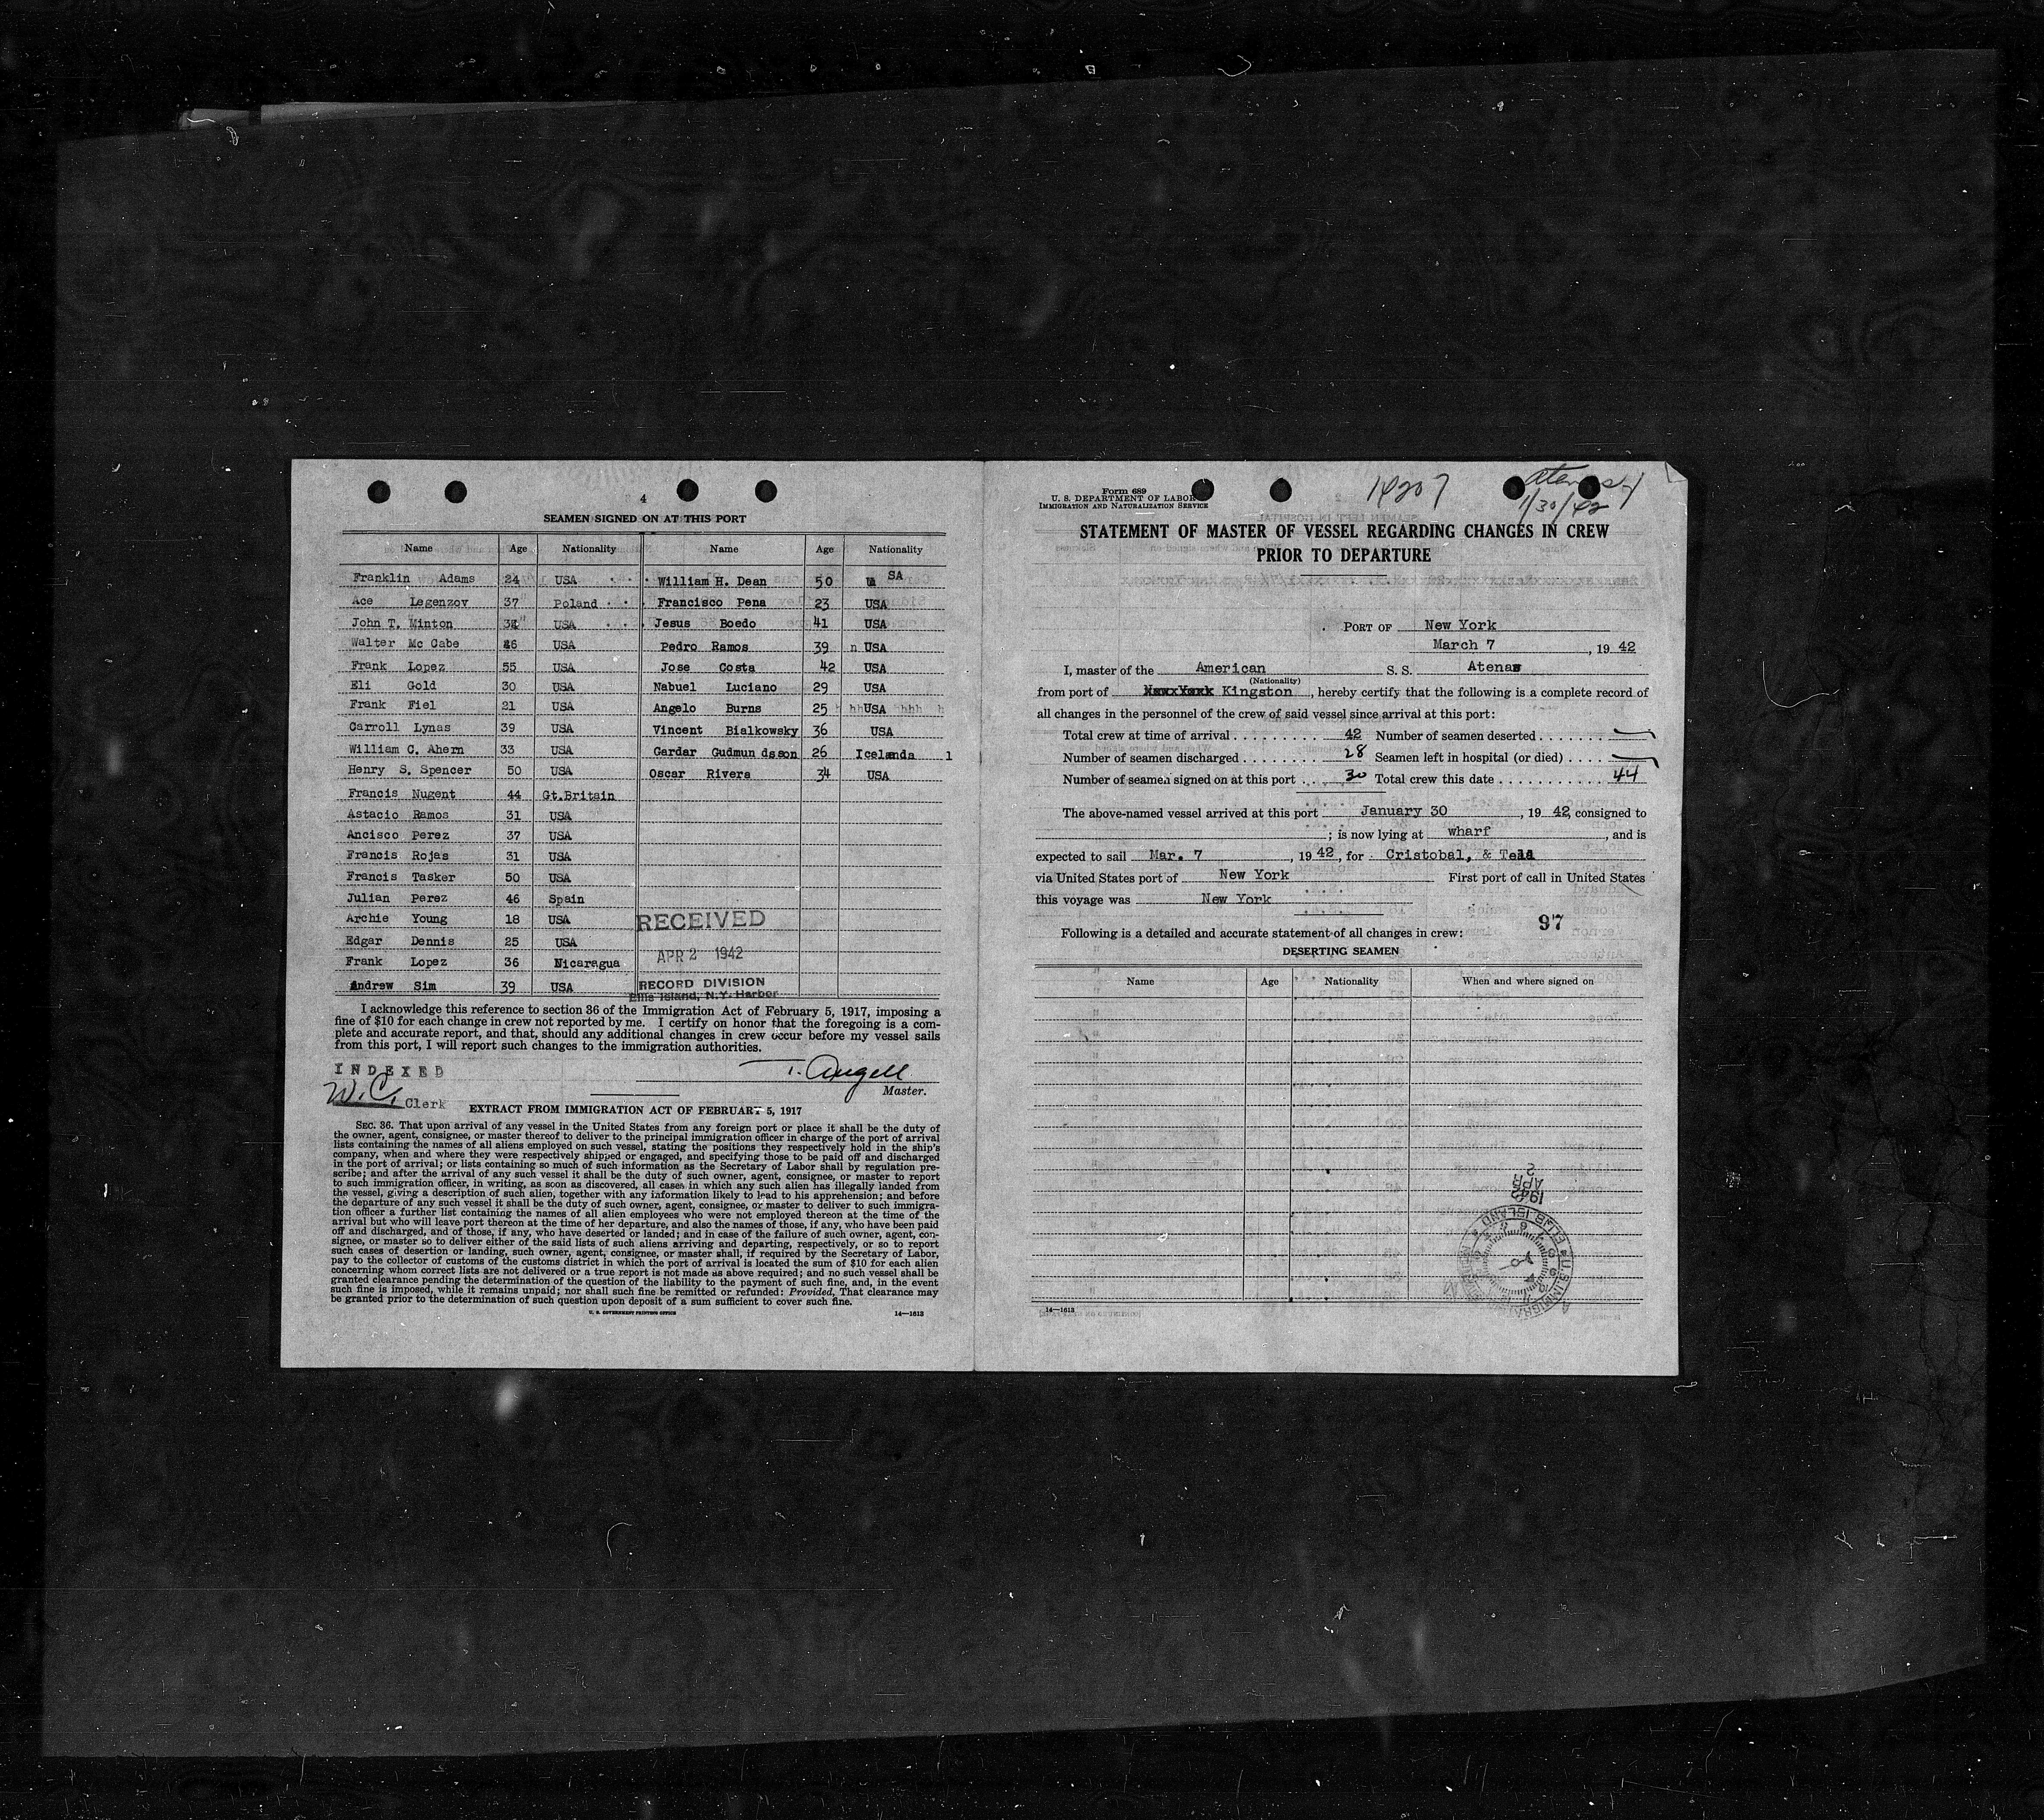 4
SEAMEN SIGNED ON AT THIS PORT
Name Age Nationality Name Age Nationality
Franklin Adams 24 USA William H. Dean 50 USA
Ace Legenzov 37 Poland Francisco Pena 23 USA
John T. Minton USA Jesus Boedo 41 USA
Walter Mc Cabe 46 USA Pedro Ramos 39 n USA
Frank Lopez 55 USA Jose Costa 42 USA
Eli Gold 30 USA Nabuel Luciano 29 USA
Frank Fiel 21 USA Angelo Burns 25 hhUSA hhhh h
Carroll Lynas 39 USA Vincent Bialkowsky 36 USA
William C. Ahern 33 USA Gardar Gudmundsson 26 Icelanda l
Henry S. Spencer 50 USA Oscar Rivera 34 USA
Francis Nugent 44 Gt.Britain
Astacio Ramos 31 USA
Ancisco Perez 37 USA
Francis Rojas 31 USA
Francis Tasker 50 USA
Julian Perez 46 Spain
Archie Young 18 USA
Edgar Dennis 25 USA
Frank Lopez 36 Nicaragua
Andrew Sim 39 USA
RECEIVED
APR 2 1942
RECORD DIVISION
Ellis Island, N.Y. Harbor
I acknowledge this reference to section 36 of the Immigration Act of February 5, 1917, imposing a
fine of $10 for each change in crew not reported by me. I certify on honor that the foregoing is a com-
plete and accurate report, and that, should any additional changes in crew occur before my vessel sails
from this port, I will report such changes to the immigration authorities.
INDEXED
T. Angell
Master.
W.C. Clerk
EXTRACT FROM IMMIGRATION ACT OF FEBRUARY 5, 1917
SEC. 36. That upon arrival of any vessel in the United States from any foreign port or place it shall be the duty of
the owner, agent, consignee, or master thereof to deliver to the principal immigration officer in charge of the port of arrival
lists containing the names of all aliens employed on such vessel, stating the positions they respectively hold in the ship's
company, when and where they were respectively shipped or engaged, and specifying those to be paid off and discharged
in the port of arrival; or lists containing so much of such information as the Secretary of Labor shall by regulation pre-
scribe; and after the arrival of any such vessel it shall be the duty of such owner, agent, consignee, or master to report
to such immigration officer, in writing, as soon as discovered, all cases in which any such alien has illegally landed from
the vessel, giving a description of such alien, together with any information likely to lead to his apprehension; and before
the departure of any such vessel it shall be the duty of such owner, agent, consignee, or master to deliver to such immigra-
tion officer a further list containing the names of all alien employees who were not employed thereon at the time of the
arrival but who will leave port thereon at the time of her departure, and also the names of those, if any, who have been paid
off and discharged, and of those, if any, who have deserted or landed; and in case of the failure of such owner, agent, con-
signee, or master so to deliver either of the said lists of such aliens arriving and departing, respectively, or so to report
such cases of desertion or landing, such owner, agent, consignee, or master shall, if required by the Secretary of Labor,
pay to the collector of customs of the customs district in which the port of arrival is located the sum of $10 for each alien
concerning whom correct lists are not delivered or a true report is not made as above required; and no such vessel shall be
granted clearance pending the determination of the question of the liability to the payment of such fine, and, in the event
such fine is imposed, while it remains unpaid; nor shall such fine be remitted or refunded: Provided, That clearance may
be granted prior to the determination of such question upon deposit of a sum sufficient to cover such fine.
U. S. GOVERNMENT PRINTING OFFICE 14—1613
Form 689
U. S. DEPARTMENT OF LABOR
IMMIGRATION AND NATURALIZATION SERVICE
14207
Atenas
1/30/42
STATEMENT OF MASTER OF VESSEL REGARDING CHANGES IN CREW
PRIOR TO DEPARTURE
PORT OF New York
March 7, 1942
I, master of the American S. S. Atenas
(Nationality)
from port of Kingston, hereby certify that the following is a complete record of
all changes in the personnel of the crew of said vessel since arrival at this port:
Total crew at time of arrival 42 Number of seamen deserted
Number of seamen discharged 28 Seamen left in hospital (or died)
Number of seamen signed on at this port 30 Total crew this date 44
The above-named vessel arrived at this port January 30, 1942, consigned to
; is now lying at wharf, and is
expected to sail Mar. 7, 1942, for Cristobal, & Tela
via United States port of New York First port of call in United States
this voyage was New York
97
Following is a detailed and accurate statement of all changes in crew:
DESERTING SEAMEN
Name Age Nationality When and where signed on
1942
APR
2
U.S. IMMIGRA ELLIS ISLAND
14—1613